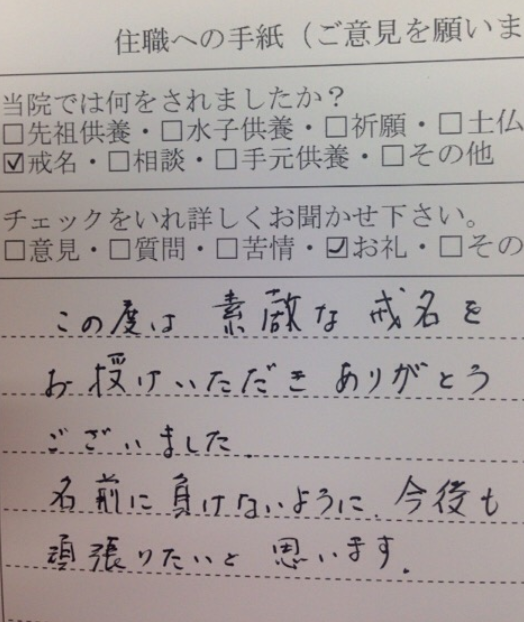 住職への手紙（ご意見を願いま
当院では何をされましたか？
□先祖供養・□水子供養・□祈願・□土仏
☑戒名・□相談・□手元供養・□その他
チェックをいれ詳しくお聞かせ下さい。
□意見・□質問・□苦情・☑お礼・□その
この度は 素敵な 戒名を
お授けいただき ありがとう
ございました.
名前に負けないように、今後も
頑張りたいと 思います.